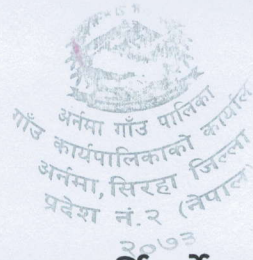 अर्नमा गाउँ पालिका
गाँउ कार्यपालिकाको कार्याल
अर्नमा, सिरहा जिल्ला
प्रदेश नं. २ (नेपाल
२०७३